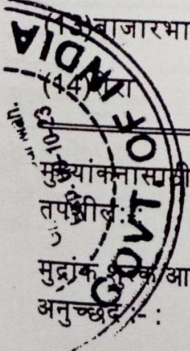 (13)बाजारभा
(14)
मुल्यांकनासाठी
तपशील:
मुद्रांक शुल्क आ
अनुच्छेद :- :
GOVT. OF INDIA